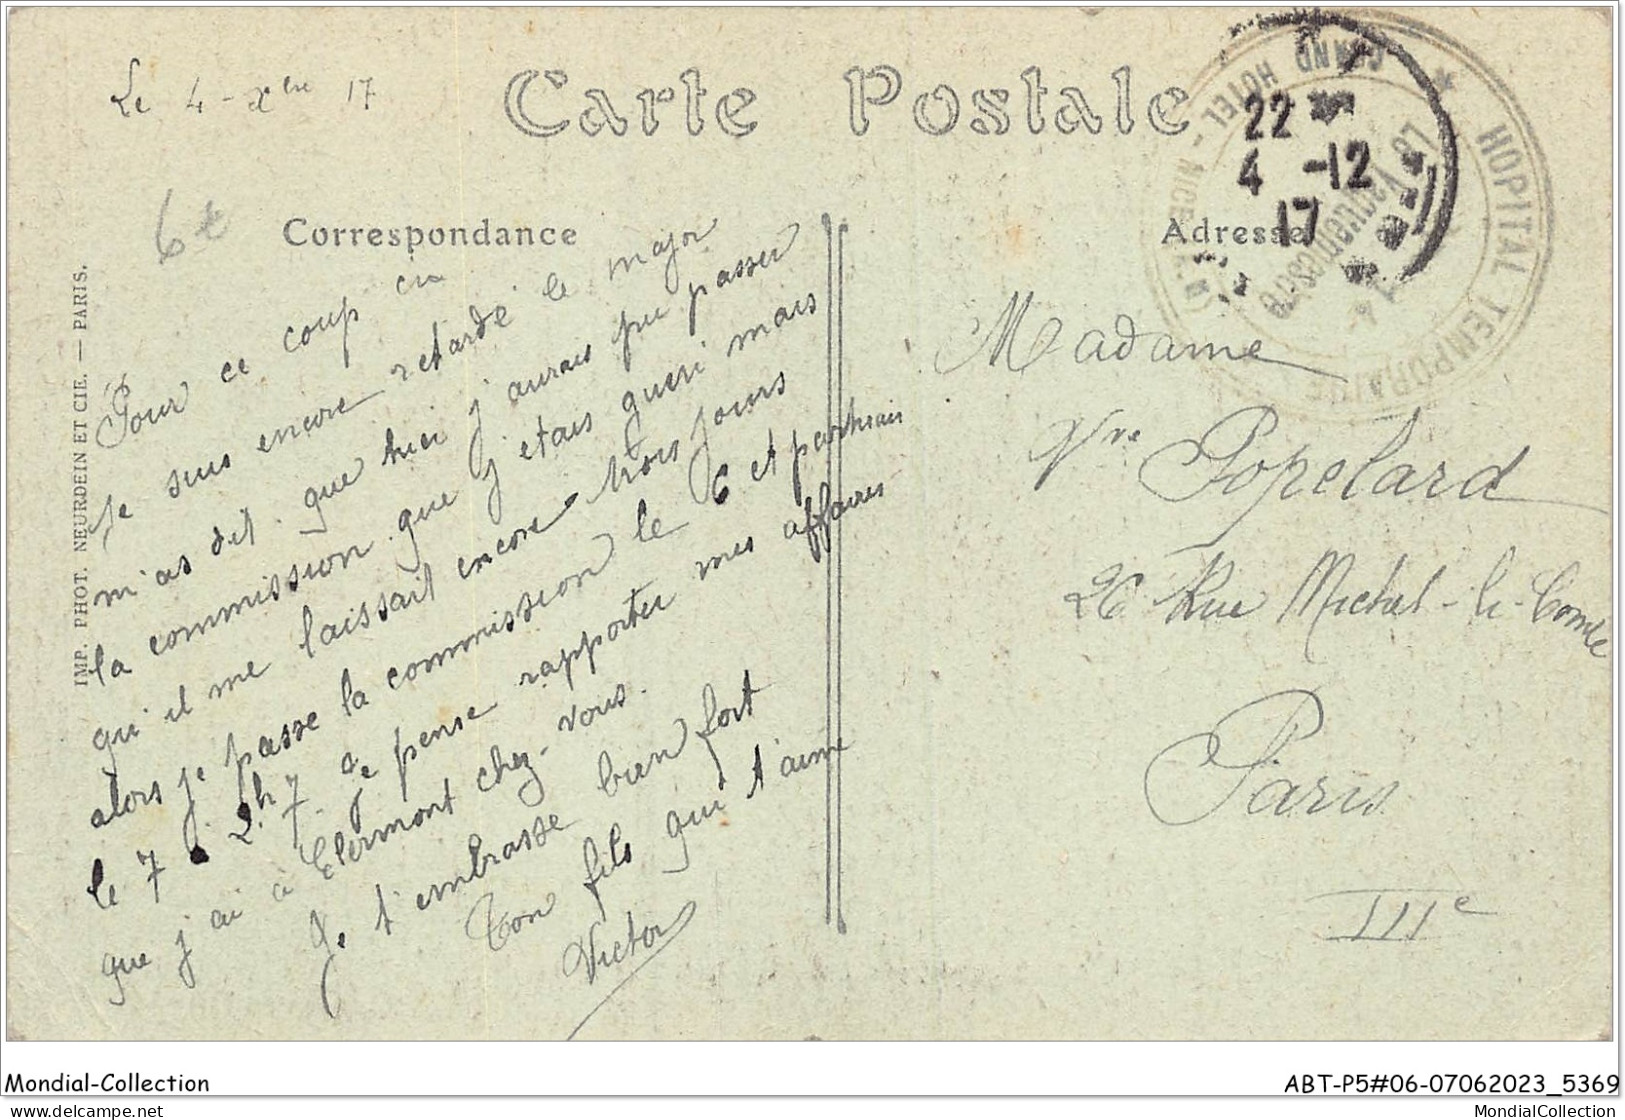 Le 4 - Xbre 17
Carte Postale
Correspondance
Adresse
6€
IMP. PHOT. NEURDEIN ET CIE. — PARIS.
Pour ce coup ci
je suis encore retardé le major
m'as dit que hier j'aurais pu passer
la commission que j'étais guéri mais
qu'il me laissait encore trois jours
alors je passe la commission le 6 et partirais
le 7 2h 7. Je pense rapporter mes affaires
que j'ai à Clermont chez-vous.
Je t'embrasse bien fort
Ton fils qui t'aime
Victor
22
4 -12
17
HOPITAL TEMPORAIRE
GRAND HOTEL -
Le Vaguemestre
Madame
Vve Popelard
26 Rue Michel-le-Comte
Paris
IIIe
Mondial-Collection
ABT-P5#06-07062023_5369
delcampe.net
MondialCollection